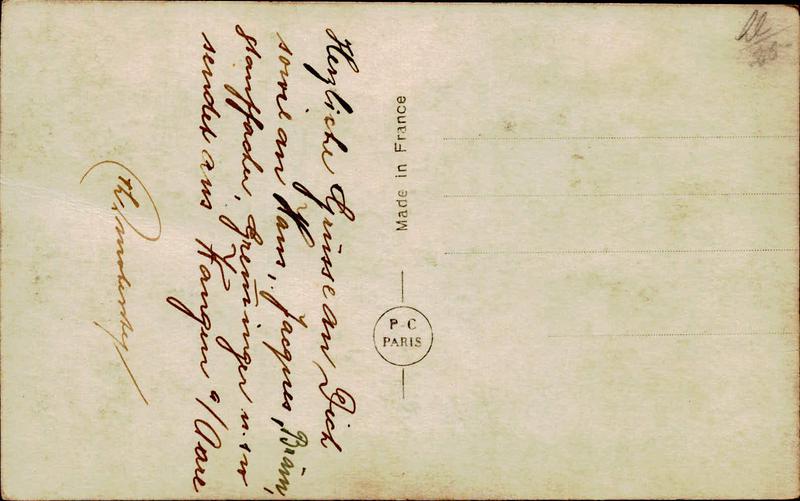 Herzliche Grüsse an Dich
sowie an Hans, Jacques, Bräm,
Stauffacher, Greminger u.s.w
sendet aus Wangen a/Aare
Made in France
P-C
PARIS